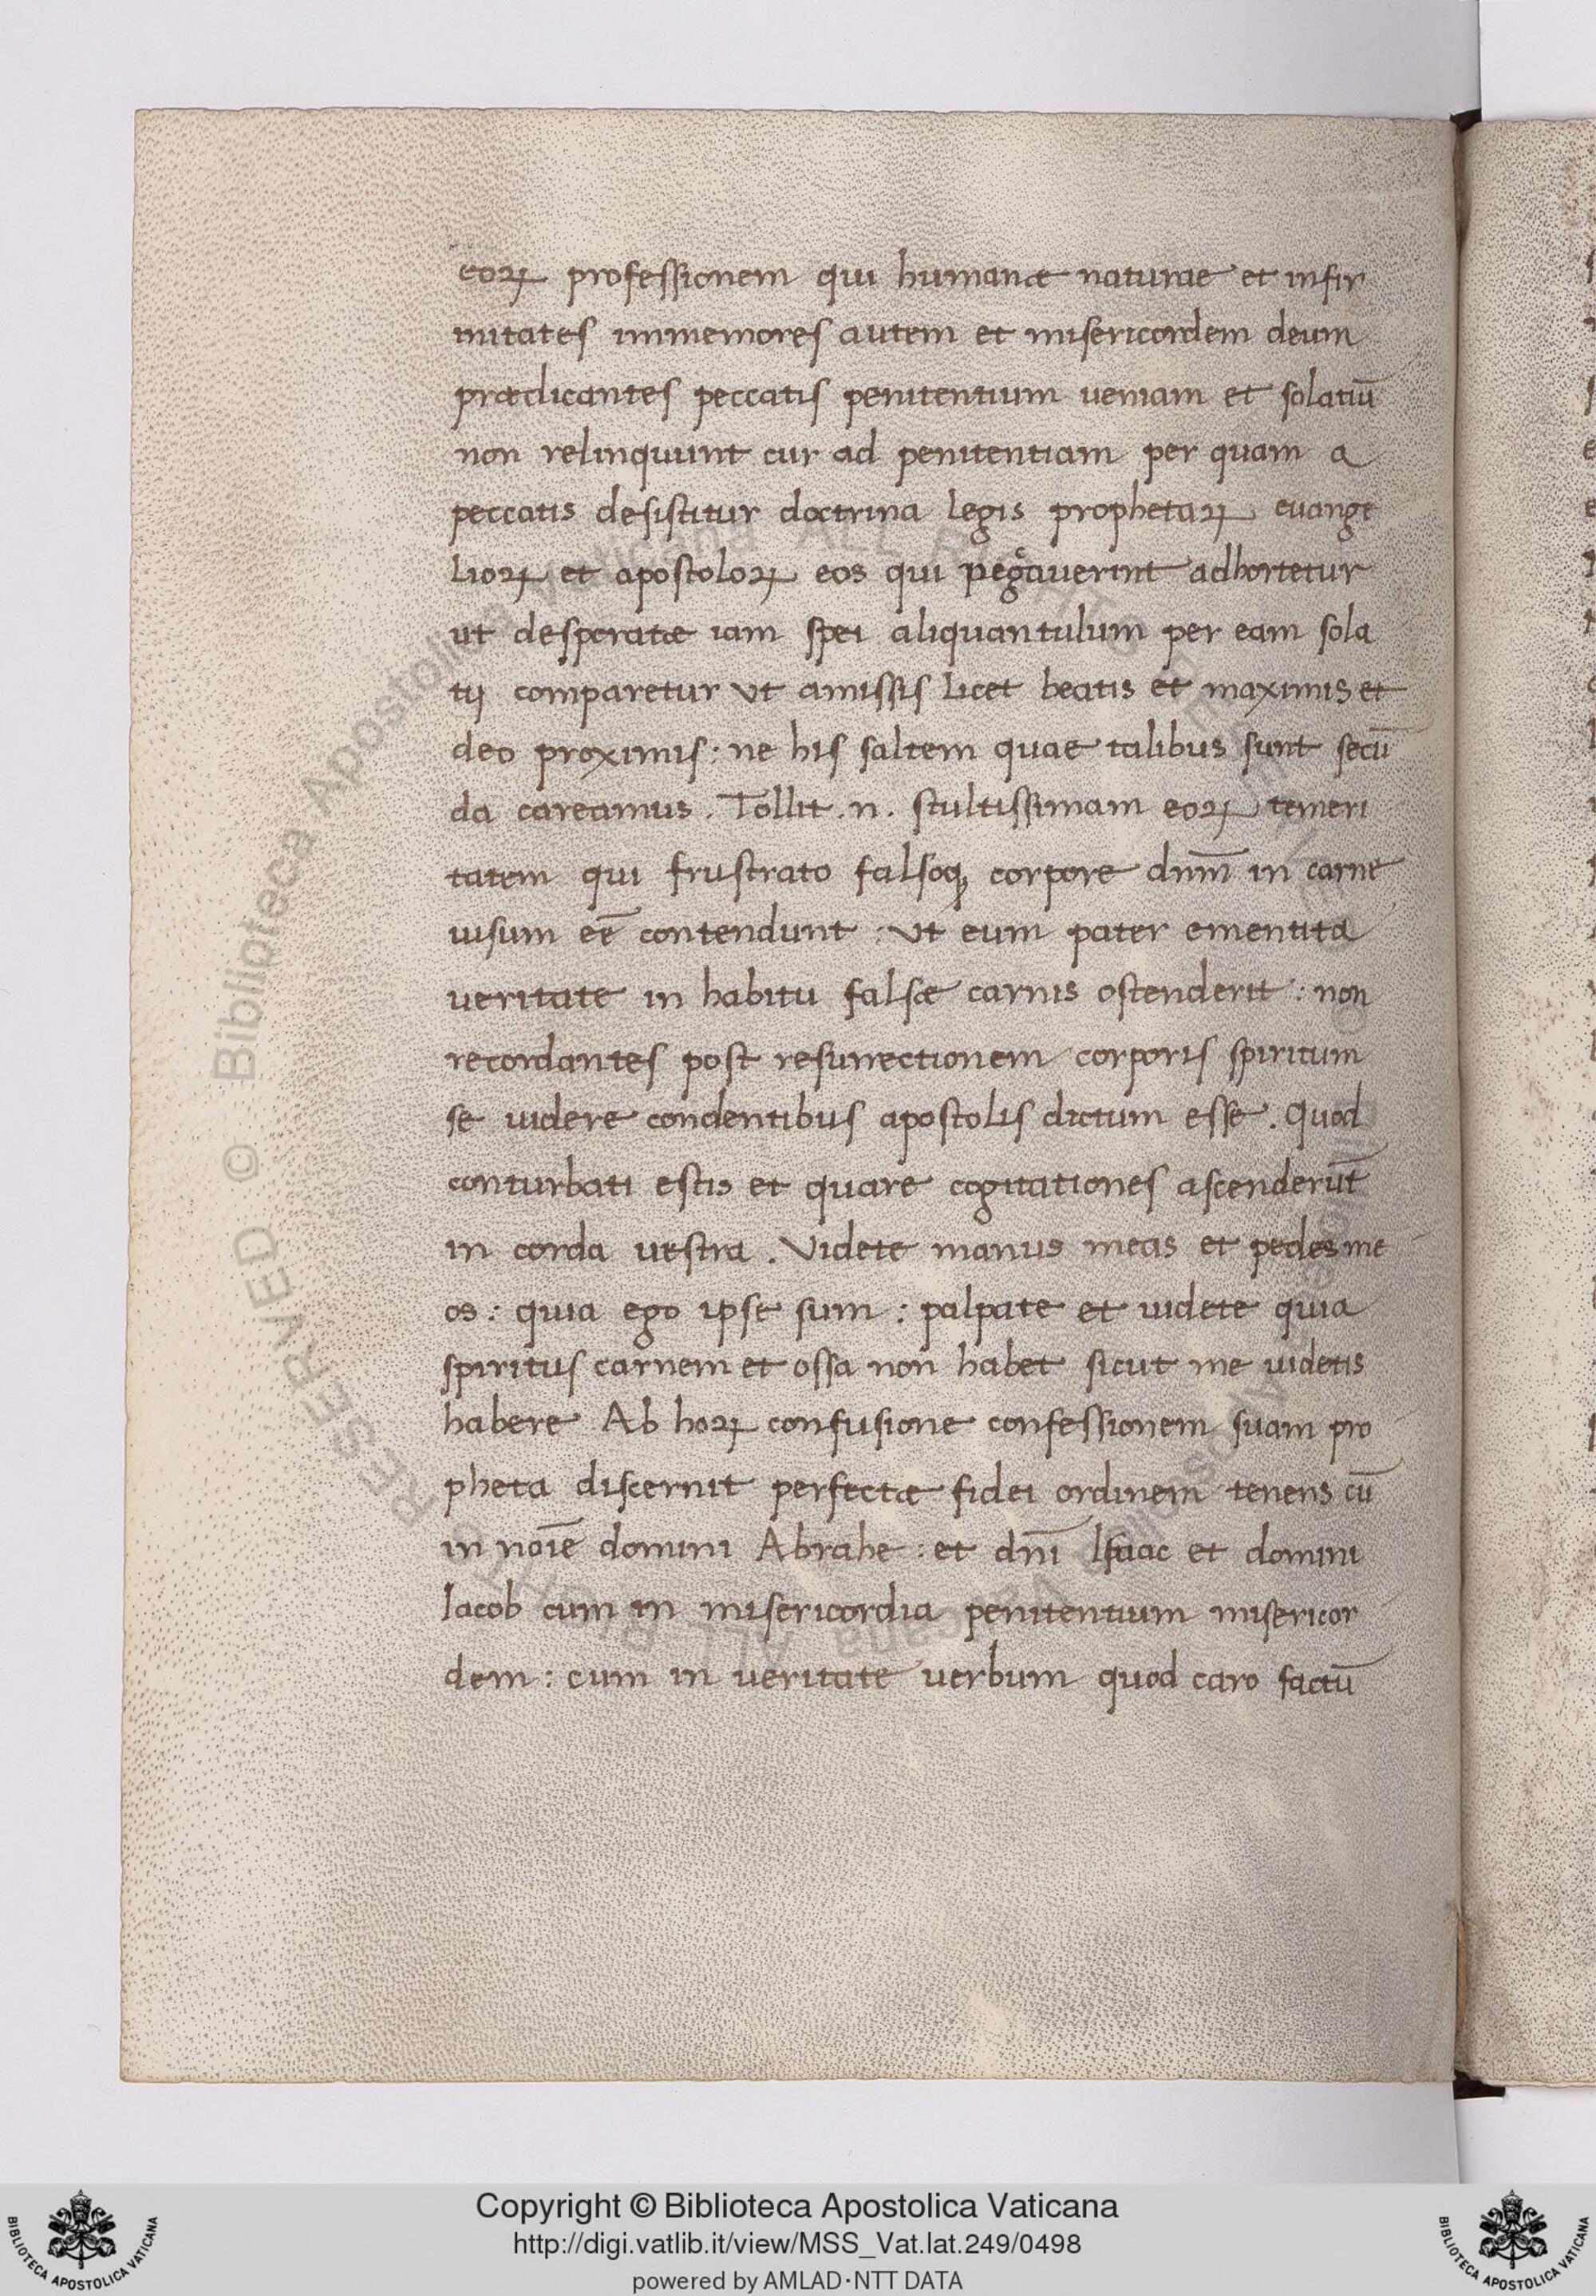 eoꝝ professionem qui humanæ naturae et infir
mitates immemores autem et misericordem deum
prædicantes peccatis penitentium ueniam et solatiū
non relinquunt cur ad penitentiam per quam a
peccatis desistitur doctrina legis prophetaꝝ euange
lioꝝ et apostoloꝝ eos qui adhortetur
ut desperatæ iam spei aliquantulum per eam sola
tij comparetur vt amissis licet beatis et maximis et
deo proximis: ne his saltem quae talibus sunt secū
da careamus. Tollit .n. stultissimam eoꝝ temeri
tatem qui frustrato falsoqꝫ corpore dnm̄ in carne
uisum eē contendunt: vt eum pater ementita
ueritate in habitu falsæ carnis ostenderit: non
recordantes post resurrectionem corporis spiritum
se uidere condentibus apostolis dictum esse. Quod
conturbati estis et quare cogitationes ascenderūt
in corda uestra. Videte manus meas et pedes me
os: quia ego ipse sum: palpate et uidete quia
spiritus carnem et ossa non habet sicut me uidetis
habere Ab hoꝝ confusione confessionem suam pro
pheta discernit perfectæ fidei ordinem tenens cū
in noīe domini Abrahe: et dn̄i Isaac et domini
Iacob cum in misericordia penitentium misericor
dem: cum in ueritate verbum quod caro factū
Copyright © Biblioteca Apostolica Vaticana
http://digi.vatlib.it/view/MSS_Vat.lat.249/0498
powered by AMLAD·NTT DATA
BIBLIOTECA APOSTOLICA VATICANA
BIBLIOTECA APOSTOLICA VATICANA
© Biblioteca Apostolica Vaticana ALL RIGHTS RESERVED